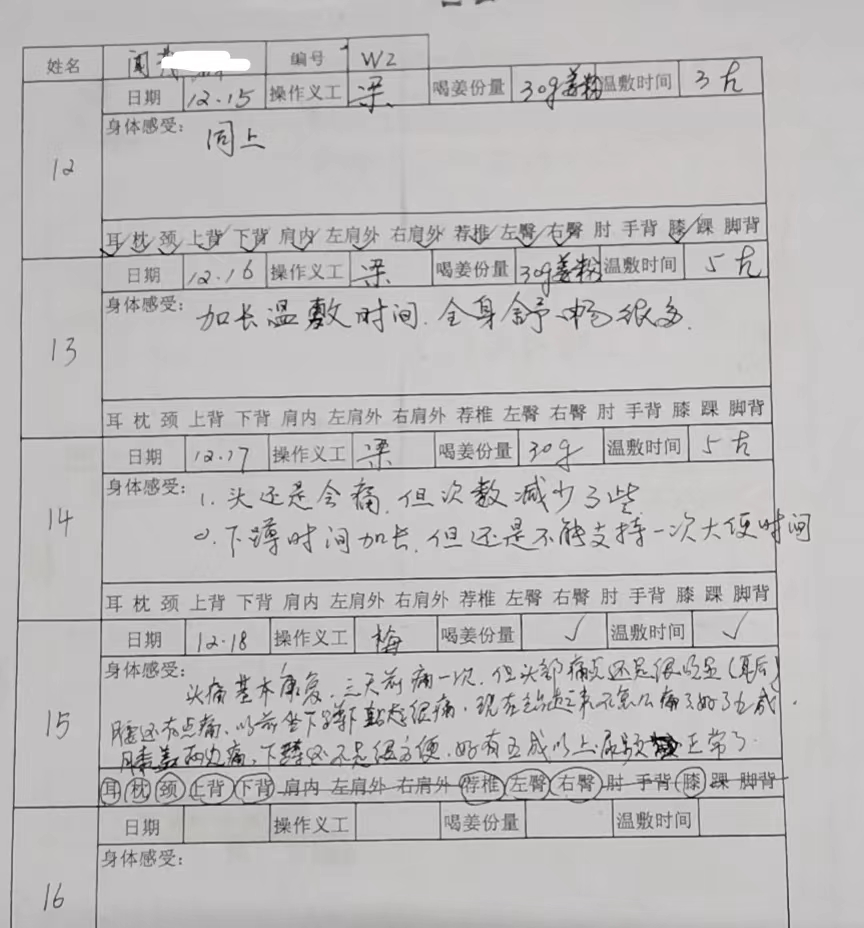 姓名 闻 编号 W2
12 日期 12.15 操作义工 梁 喝姜份量 30g姜粉 温敷时间 3方
身体感受：同上
耳 枕 颈 上背 下背 肩内 左肩外 右肩外 荐椎 左臀 右臀 肘 手背 膝 踝 脚背
13 日期 12.16 操作义工 梁 喝姜份量 30g姜粉 温敷时间 5方
身体感受：加长温敷时间.全身舒畅很多.
耳 枕 颈 上背 下背 肩内 左肩外 右肩外 荐椎 左臀 右臀 肘 手背 膝 踝 脚背
14 日期 12.17 操作义工 梁 喝姜份量 30g 温敷时间 5方
身体感受：1.头还是会痛,但次数减少了些
2.下蹲时间加长,但还是不能支持一次大便时间
耳 枕 颈 上背 下背 肩内 左肩外 右肩外 荐椎 左臀 右臀 肘 手背 膝 踝 脚背
15 日期 12.18 操作义工 梅 喝姜份量 ✓ 温敷时间 ✓
身体感受：头痛基本康复,三天前痛一次,但头部痛点还是很明显(耳后)
腰还有点痛,以前坐下蹲下站起很痛,现在站起来不怎么痛了好了五成.
膝盖两边痛,下蹲还不是很方便,好有五成以上.尿频正常了.
耳 枕 颈 上背 下背 肩内 左肩外 右肩外 荐椎 左臀 右臀 肘 手背 膝 踝 脚背
16 日期 操作义工 喝姜份量 温敷时间
身体感受：